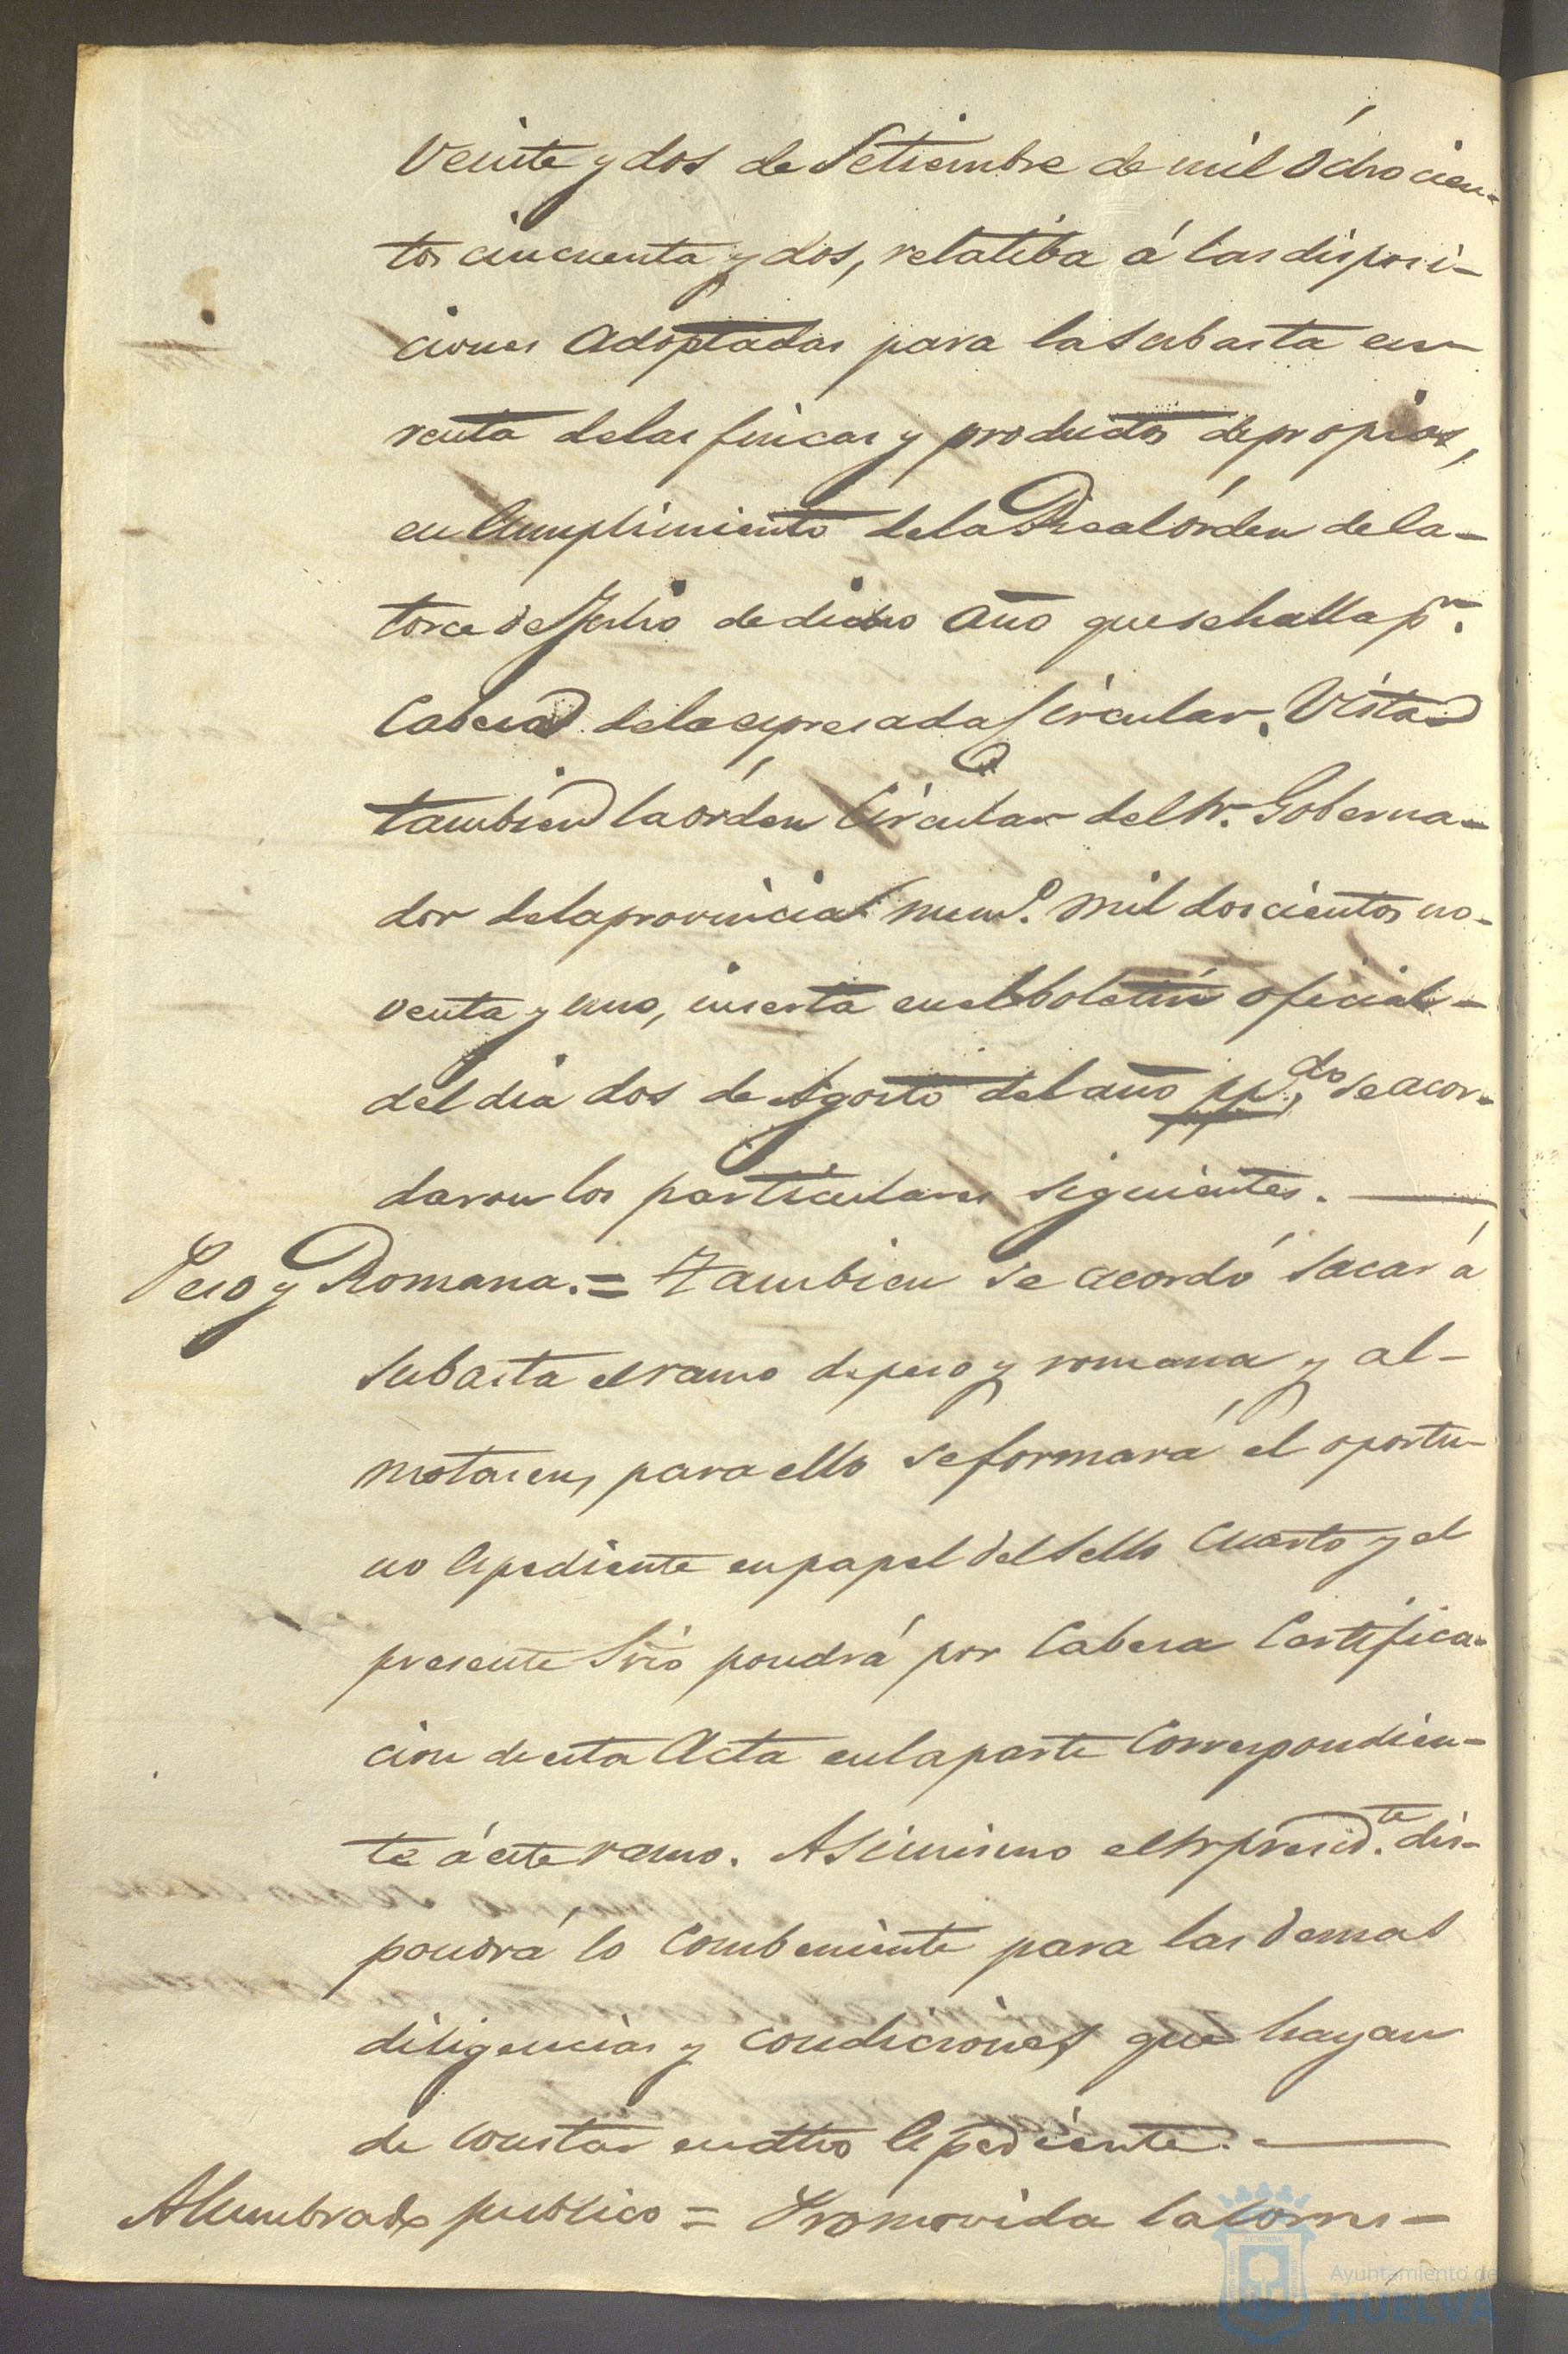 Veinte y dos de Setiembre de mil Ochocien-
tos cincuenta y dos, relatiba á las disposi-
ciones adoptadas para la subasta en
renta de las fincas y productos de propios,
en Cumplimiento de la Real órden de Ca-
torce de Julio de dicho año que se halla pr.
Cabesa de la espresada Circular. Vista
tambien la órden Circular del Sr. Goberna-
dor de la provincia numo. mil doscientos no-
venta y uno, inserta en el boletin oficial
del dia dos de Agosto del año pp.do, se acor-
daron los particulares siguientes.
Peso y Romana. = Tambien se acordó sacar á
subasta el ramo de peso y romana y al-
motasen, para ello se formará el oportu-
no Espediente en papel del Sello Cuarto y el
presente Srio pondrá por Cabesa Certifica-
cion de esta Acta en la parte Correspondien-
te á este ramo. Asimismo el Sr presid.te dis-
pondrá lo Combeniente para las demas
diligencias y condiciones que hayan
de constar en dho Espediente.
Alumbrado publico = Promovida la Corres-
Ayuntamiento de
HUELVA